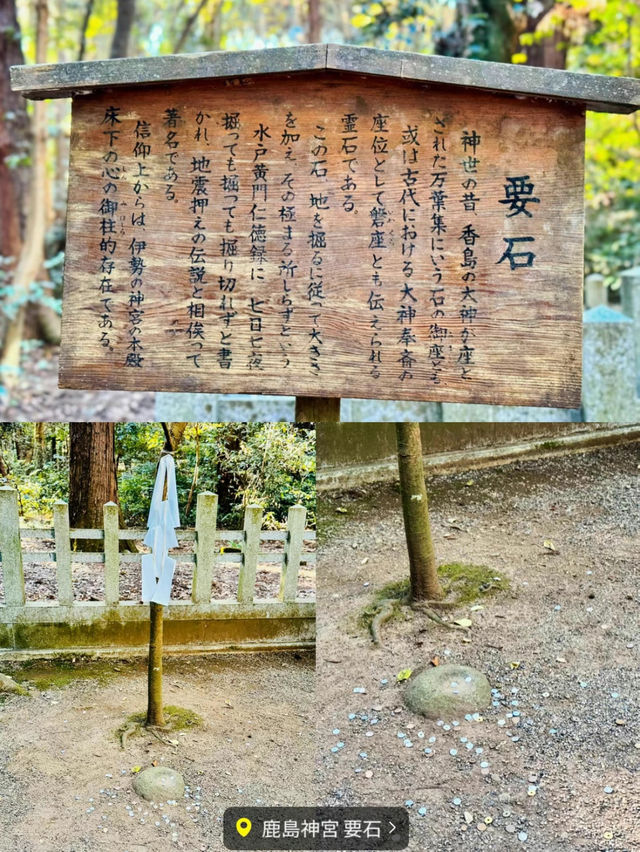 要石
神世の昔 香島の大神が座と
された万葉集にいう石の御座とも
或は古代における大神奉斎の
座位として磐座とも伝えられる
霊石である。
この石 地を掘るに従って大きさ
を加え、その極まる所しらずという
水戸黄門仁徳録に 七日七夜
掘っても掘っても掘り切れずと書
かれ、地震押えの伝説と相俟って
著名である。
信仰上からは、伊勢の神宮の本殿
床下の心の御柱的存在である。
鹿島神宮 要石